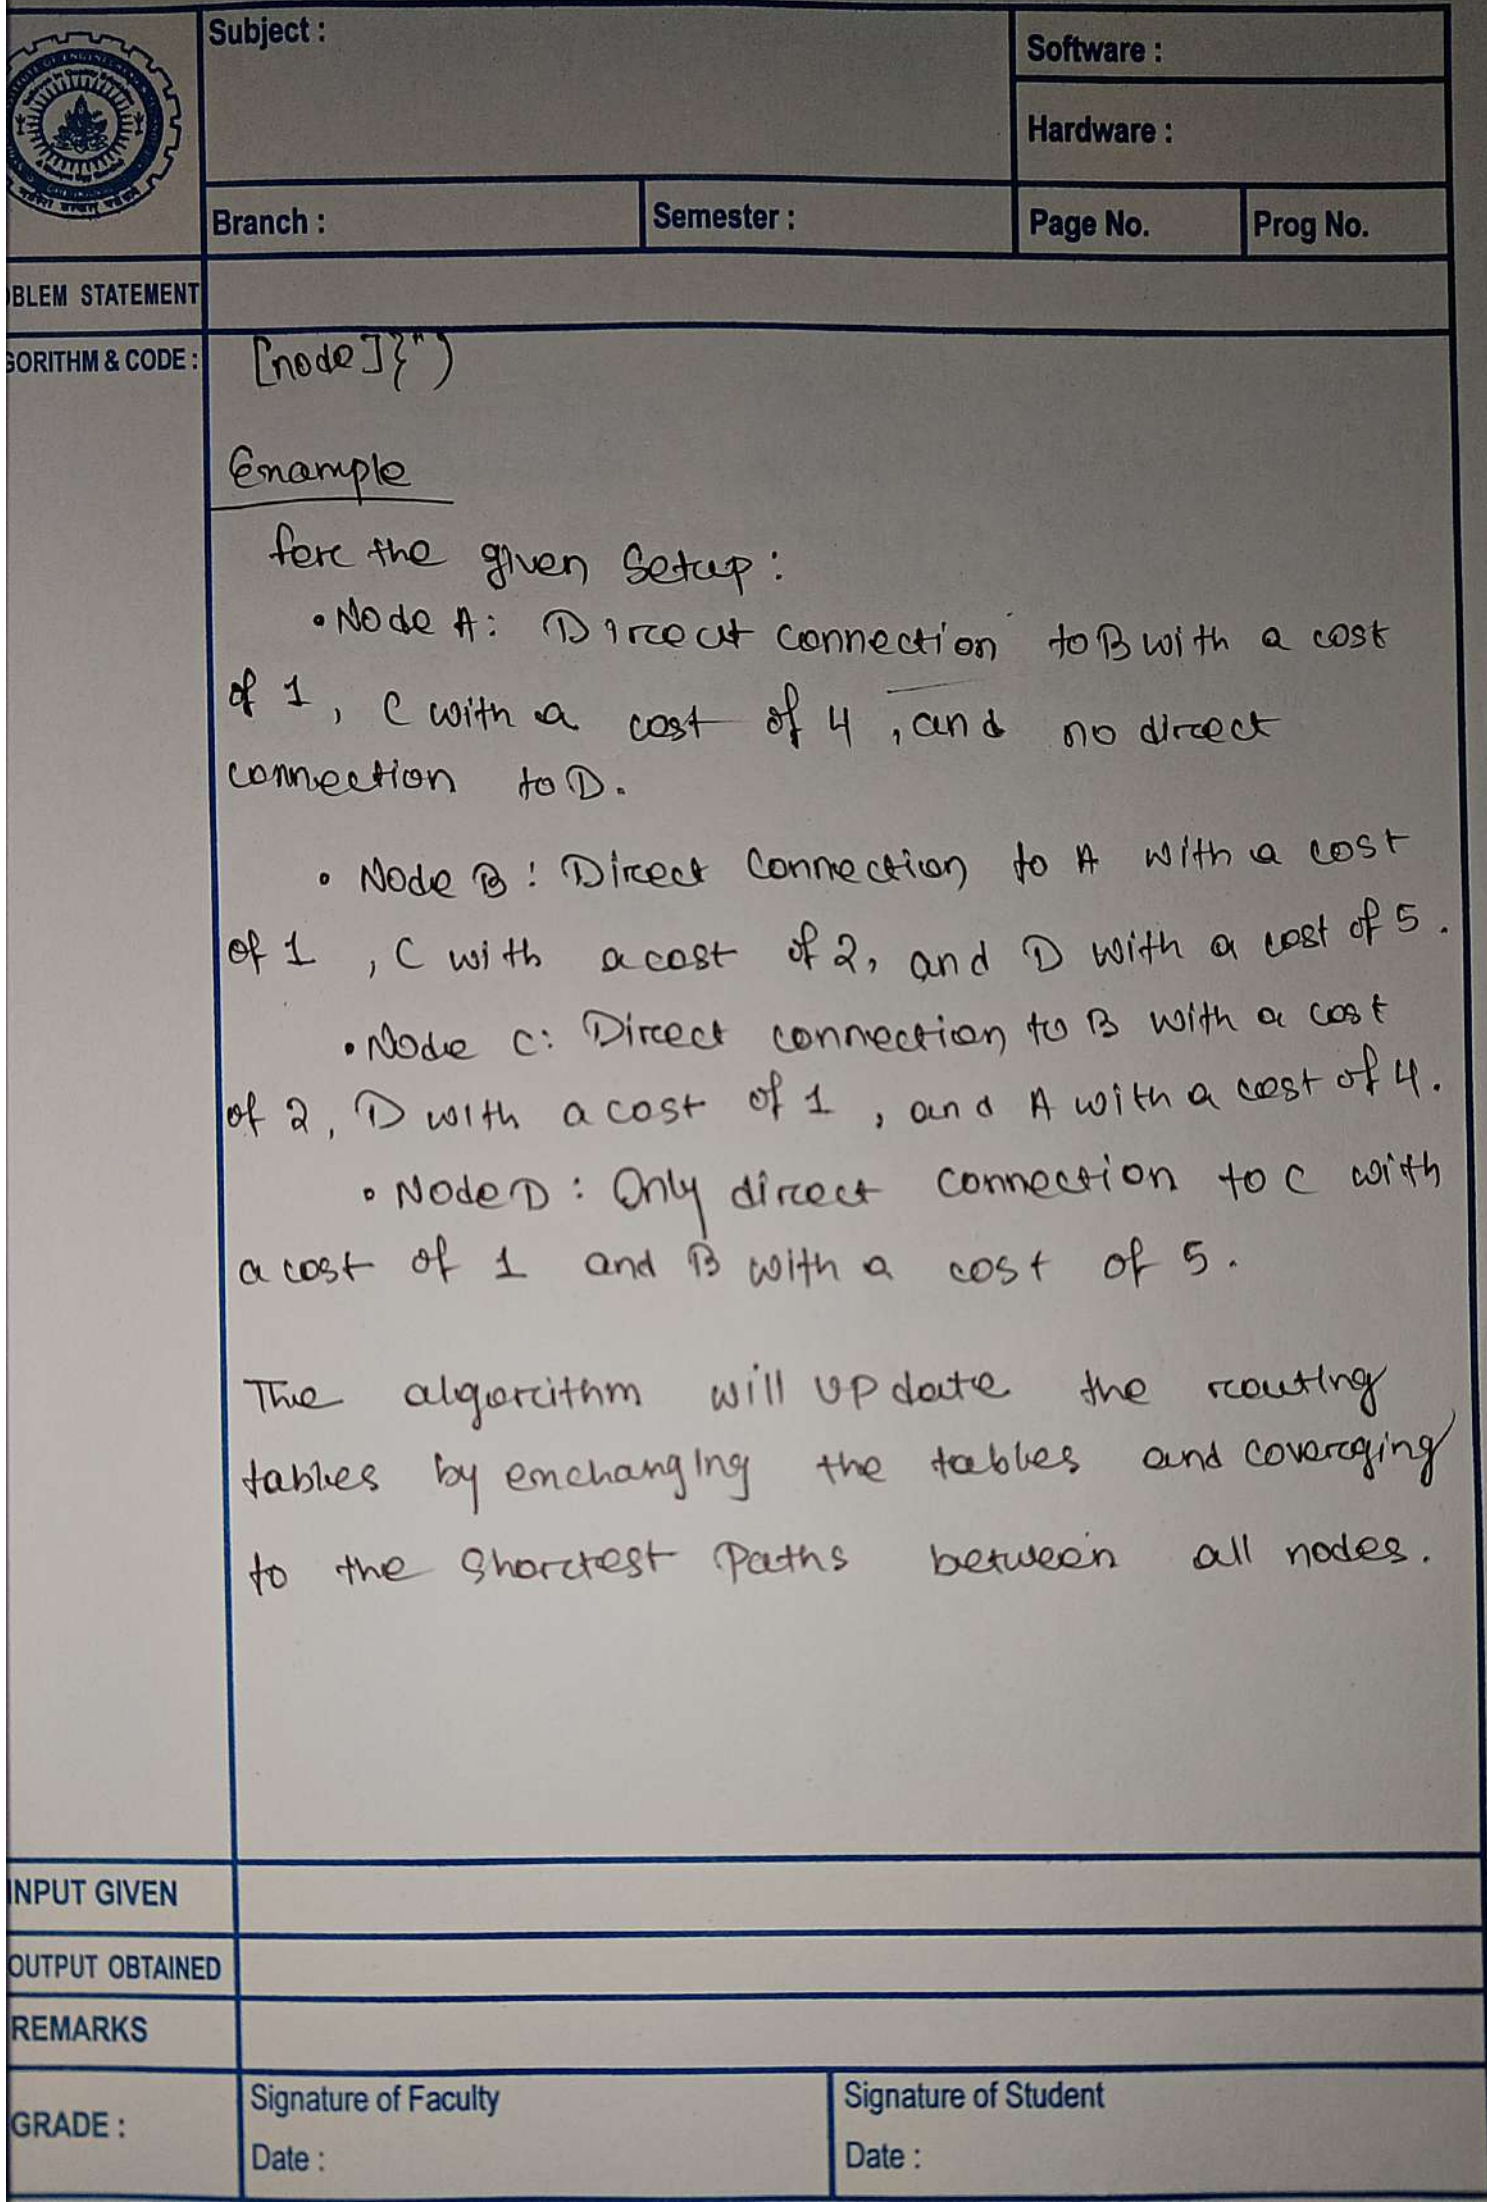 Subject :
Software :
Hardware :
Branch :
Semester :
Page No.
Prog No.
OBLEM STATEMENT
GORITHM & CODE :
[node]}")
Example
for the given Setup:
• Node A: Direct connection to B with a cost
of 1, C with a cost of 4, and no direct
connection to D.
• Node B: Direct Connection to A with a cost
of 1, C with a cost of 2, and D with a cost of 5.
• Node C: Direct connection to B with a cost
of 2, D with a cost of 1, and A with a cost of 4.
• Node D: Only direct connection to C with
a cost of 1 and B with a cost of 5.
The algorithm will update the routing
tables by exchanging the tables and coverging
to the Shortest Paths between all nodes.
INPUT GIVEN
OUTPUT OBTAINED
REMARKS
GRADE :
Signature of Faculty
Date :
Signature of Student
Date :